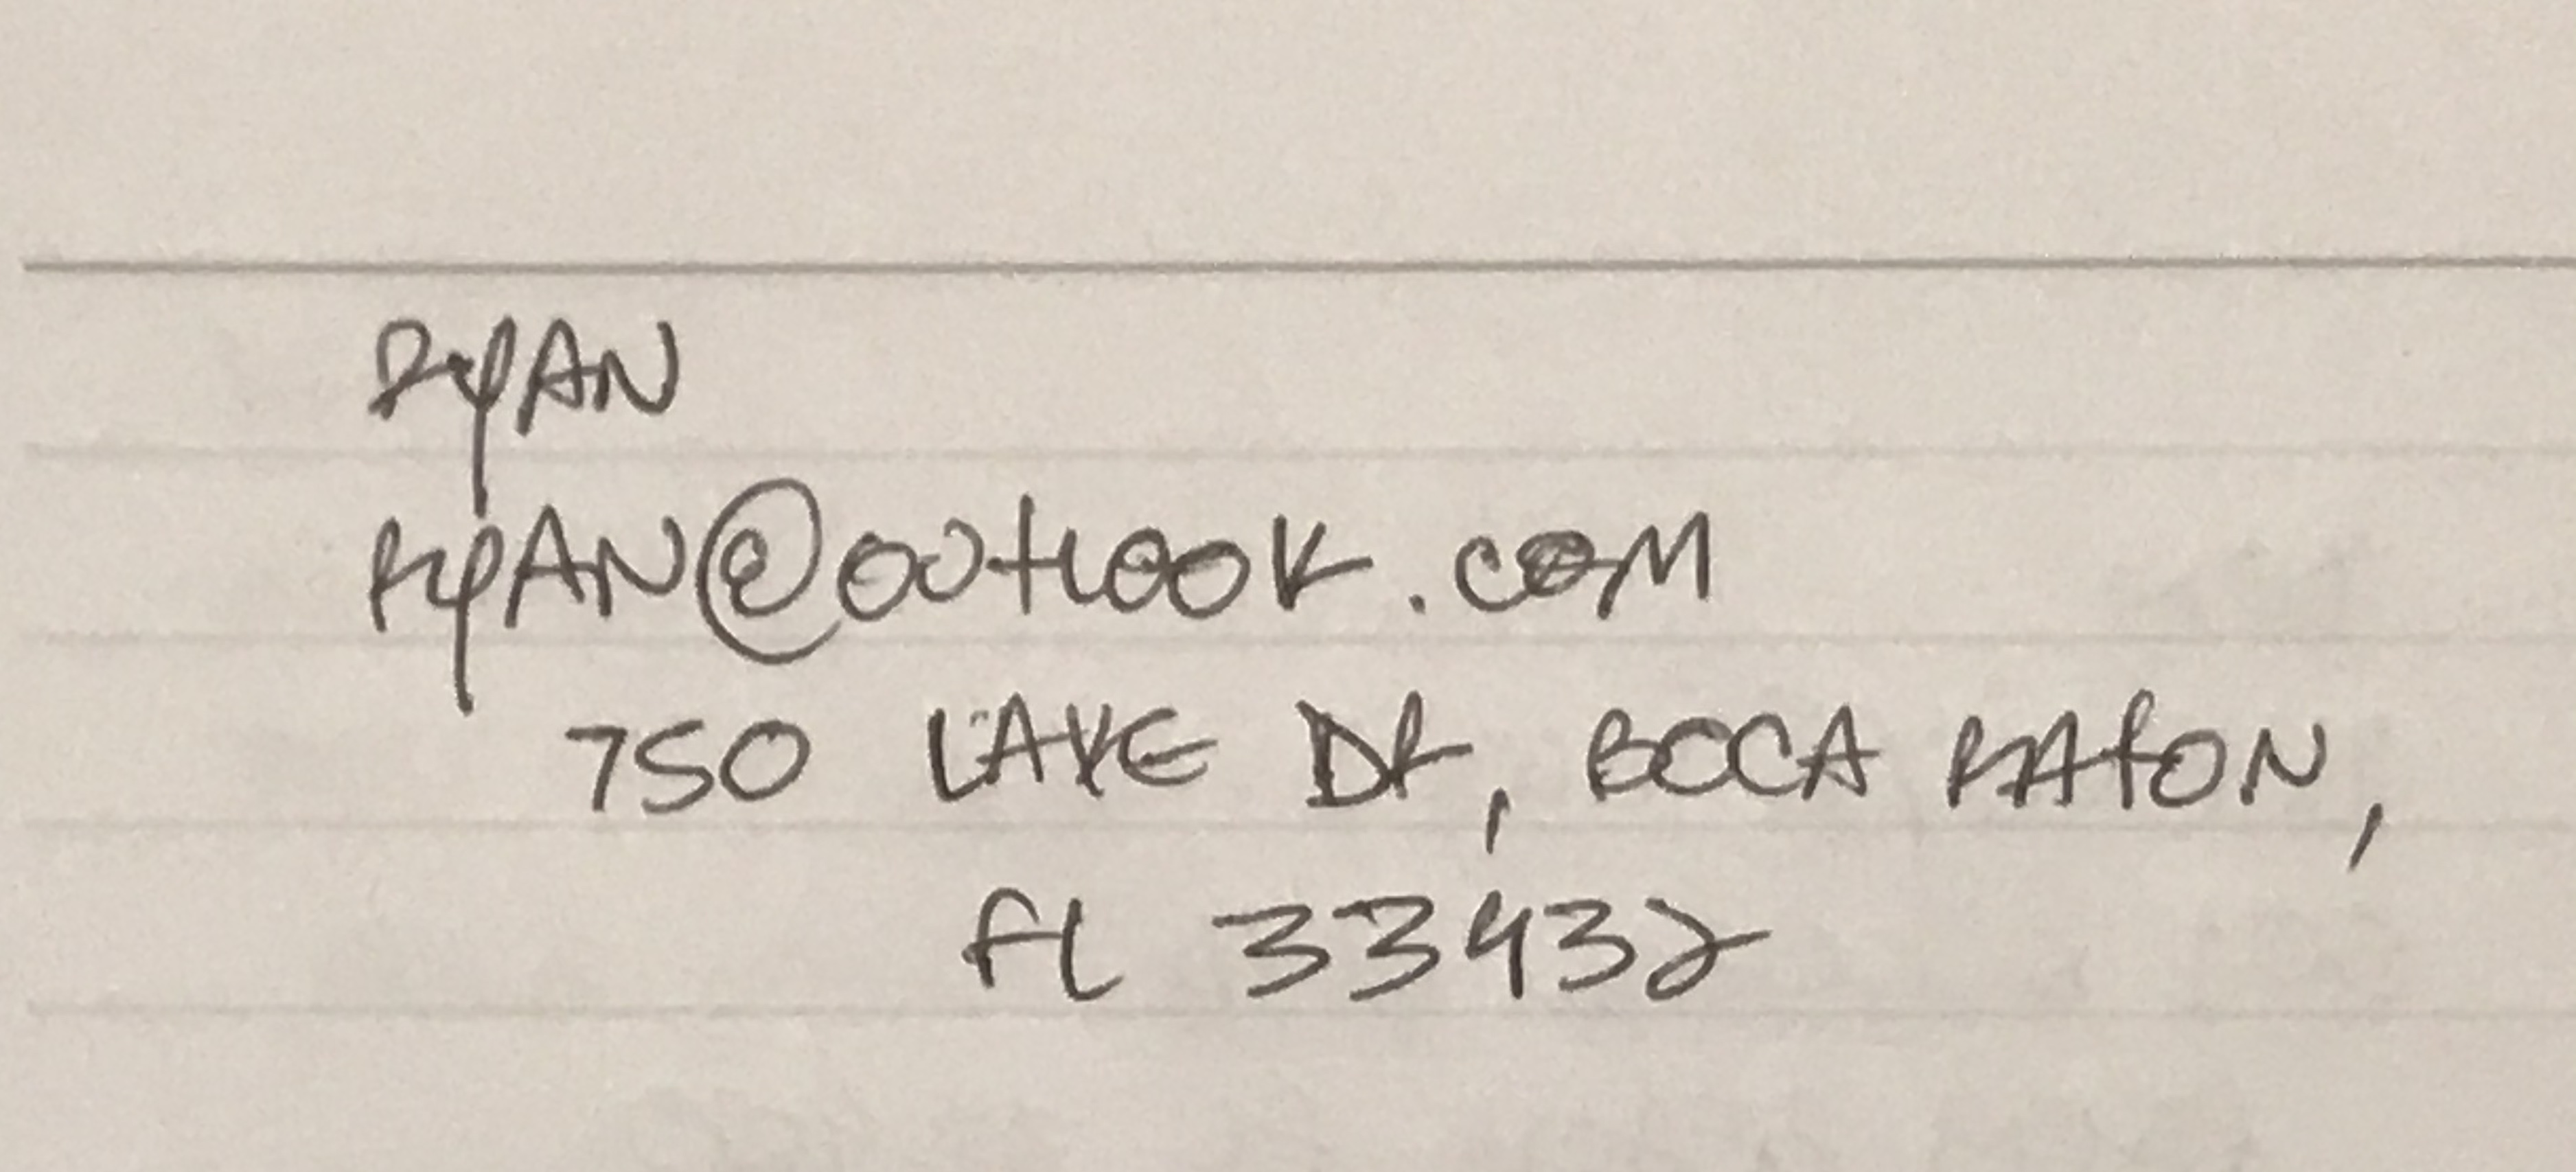 RYAN
RYAN@OUTLOOK.COM
750 LAKE DR, BOCA RATON,
FL 33432